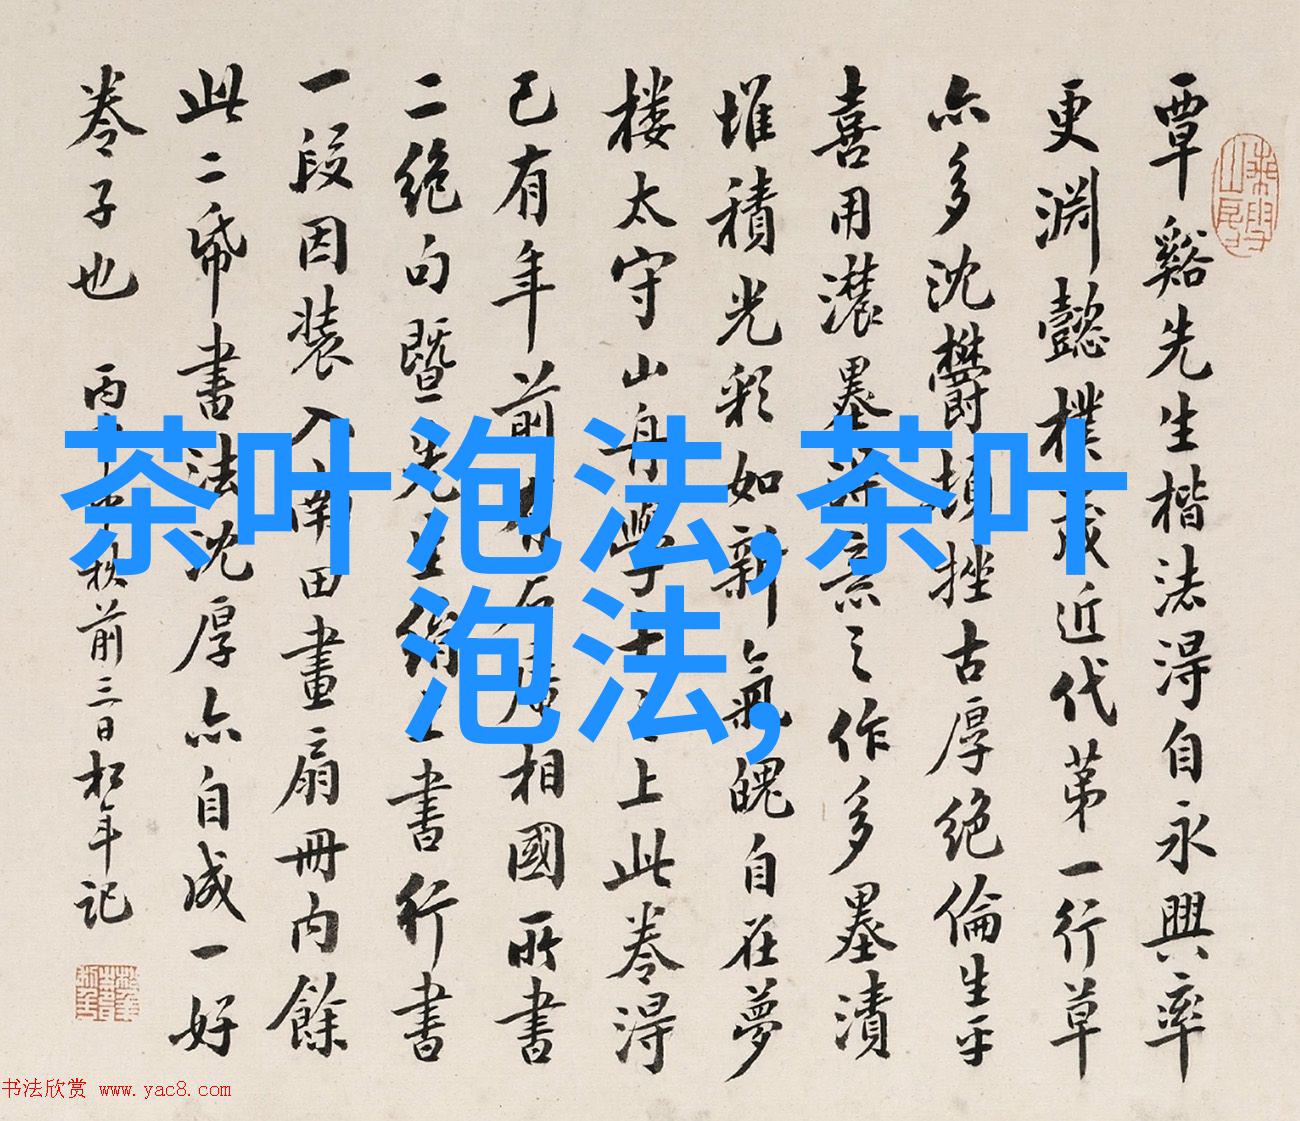 覃谿先生楷法得自永興率
更淵懿樸茂近代第一行草
亦多沈欝頓挫古厚絶倫生平
喜用濃墨得意之作多墨漬
堆積光彩如新氣魄自在夢
楼太守山舟學士之上此卷得
已有年前有石庵相國所書
二絶句暨先生書行書
一段因装入南田畫扇冊内餘
此二帋書法沈厚亦自成一好
卷子也 丙秋前三日松年記
茶叶泡法,茶叶
泡法,
书法欣赏 www.yac8.com